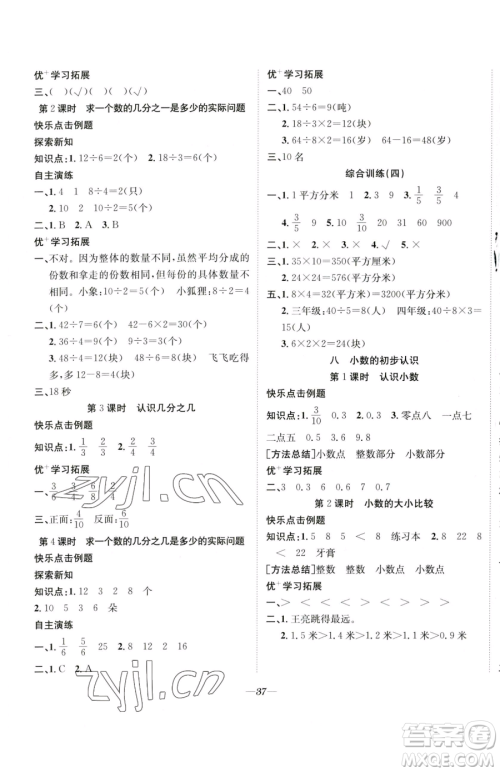 优⁺学习拓展
三、( )(√)( )(√)
第2课时 求一个数的几分之一是多少的实际问题
快乐点击例题
探索新知
知识点:1. 12÷6=2(个) 2. 18÷3=6(个)
自主演练
一、1. 4 1 8÷4=2(个)
2. 10 2 10÷5=2(个)
二、1. B 2. B 3. A
优⁺学习拓展
一、不对。因为整体的数量不同,虽然平均分成的
份数和拿走的份数相同,但每份的具体数量
不相同。小象:10÷2=5(个) 小狐狸:6÷2
=3(个)
二、1. 42÷6=7(块) 2. 60÷2=30(块)
3. 48÷4=12(块) 48÷6=8(块) 飞飞吃得
多。
三、18秒
第3课时 认识几分之几
快乐点击例题
知识点:1. 1/3 2/3 2. 3/4 2/4
优⁺学习拓展
一、3/6 3/4 6/8 2/4
三、正面: 反面:
第4课时 求一个数的几分之几是多少的实际问题
快乐点击例题
探索新知
知识点:1. 12 3 2 8 个
2. 10 5 3 6 朵
自主演练
一、1/6 5/6 20 4 16
二、1. C 2. A
优⁺学习拓展
一、40 50
二、1. 54÷6=9(吨)
2. 18÷6×2=6(块)
3. 64÷8×2=16(块) 64-16=48(岁)
三、10名
综合训练(四)
一、1. 1平方分米 2. 3 9 3. 3/5 3/5
4. 9/10 > 5. 8 9 6. 9 6
二、1. × 2. × 3. √ 4. ×
三、1. 35×10=350(平方厘米)
2. 24×24=576(平方分米)
五、1. 8×4=32(平方米)=3200(平方分米)
2. 三年级:40÷5=8(人) 四年级:40÷8×3=
15(人)
3. 6×2×2=24(块)
八 小数的初步认识
第1课时 认识小数
快乐点击例题
知识点:1. 3/10 0.3 2. 0.3 零点八 一点七
二点五 3. 0.3 3/10
[方法总结] 小数点 整数部分 小数部分
优⁺学习拓展
一、2.3 0.3 0.6 0.7 0.9
第2课时 小数的大小比较
快乐点击例题
知识点:1. 5 8 5 < 8 < 练习本 2. 8
< 8 < 22 牙膏
[方法总结] 整数 整数 小数点 小数点
优⁺学习拓展
一、> < > < > <
二、1. 王亮跳得最远。
2. 1.5米>1.4米>1.2米>0.9米
37
zyjl.cn
zyjl.cn
答案圈
MXQE.COM